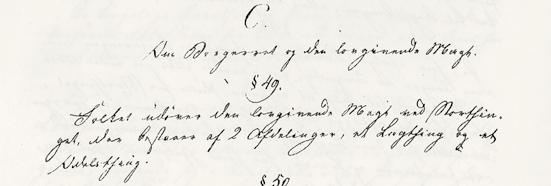 C.
Om Borgerret og den lovgivende Magt.
§ 49.
Folket udøver den lovgivende Magt ved Storthin-
get, der bestaaer af 2 Afdelinger, et Lagthing og et
Odelsthing.
§ 50